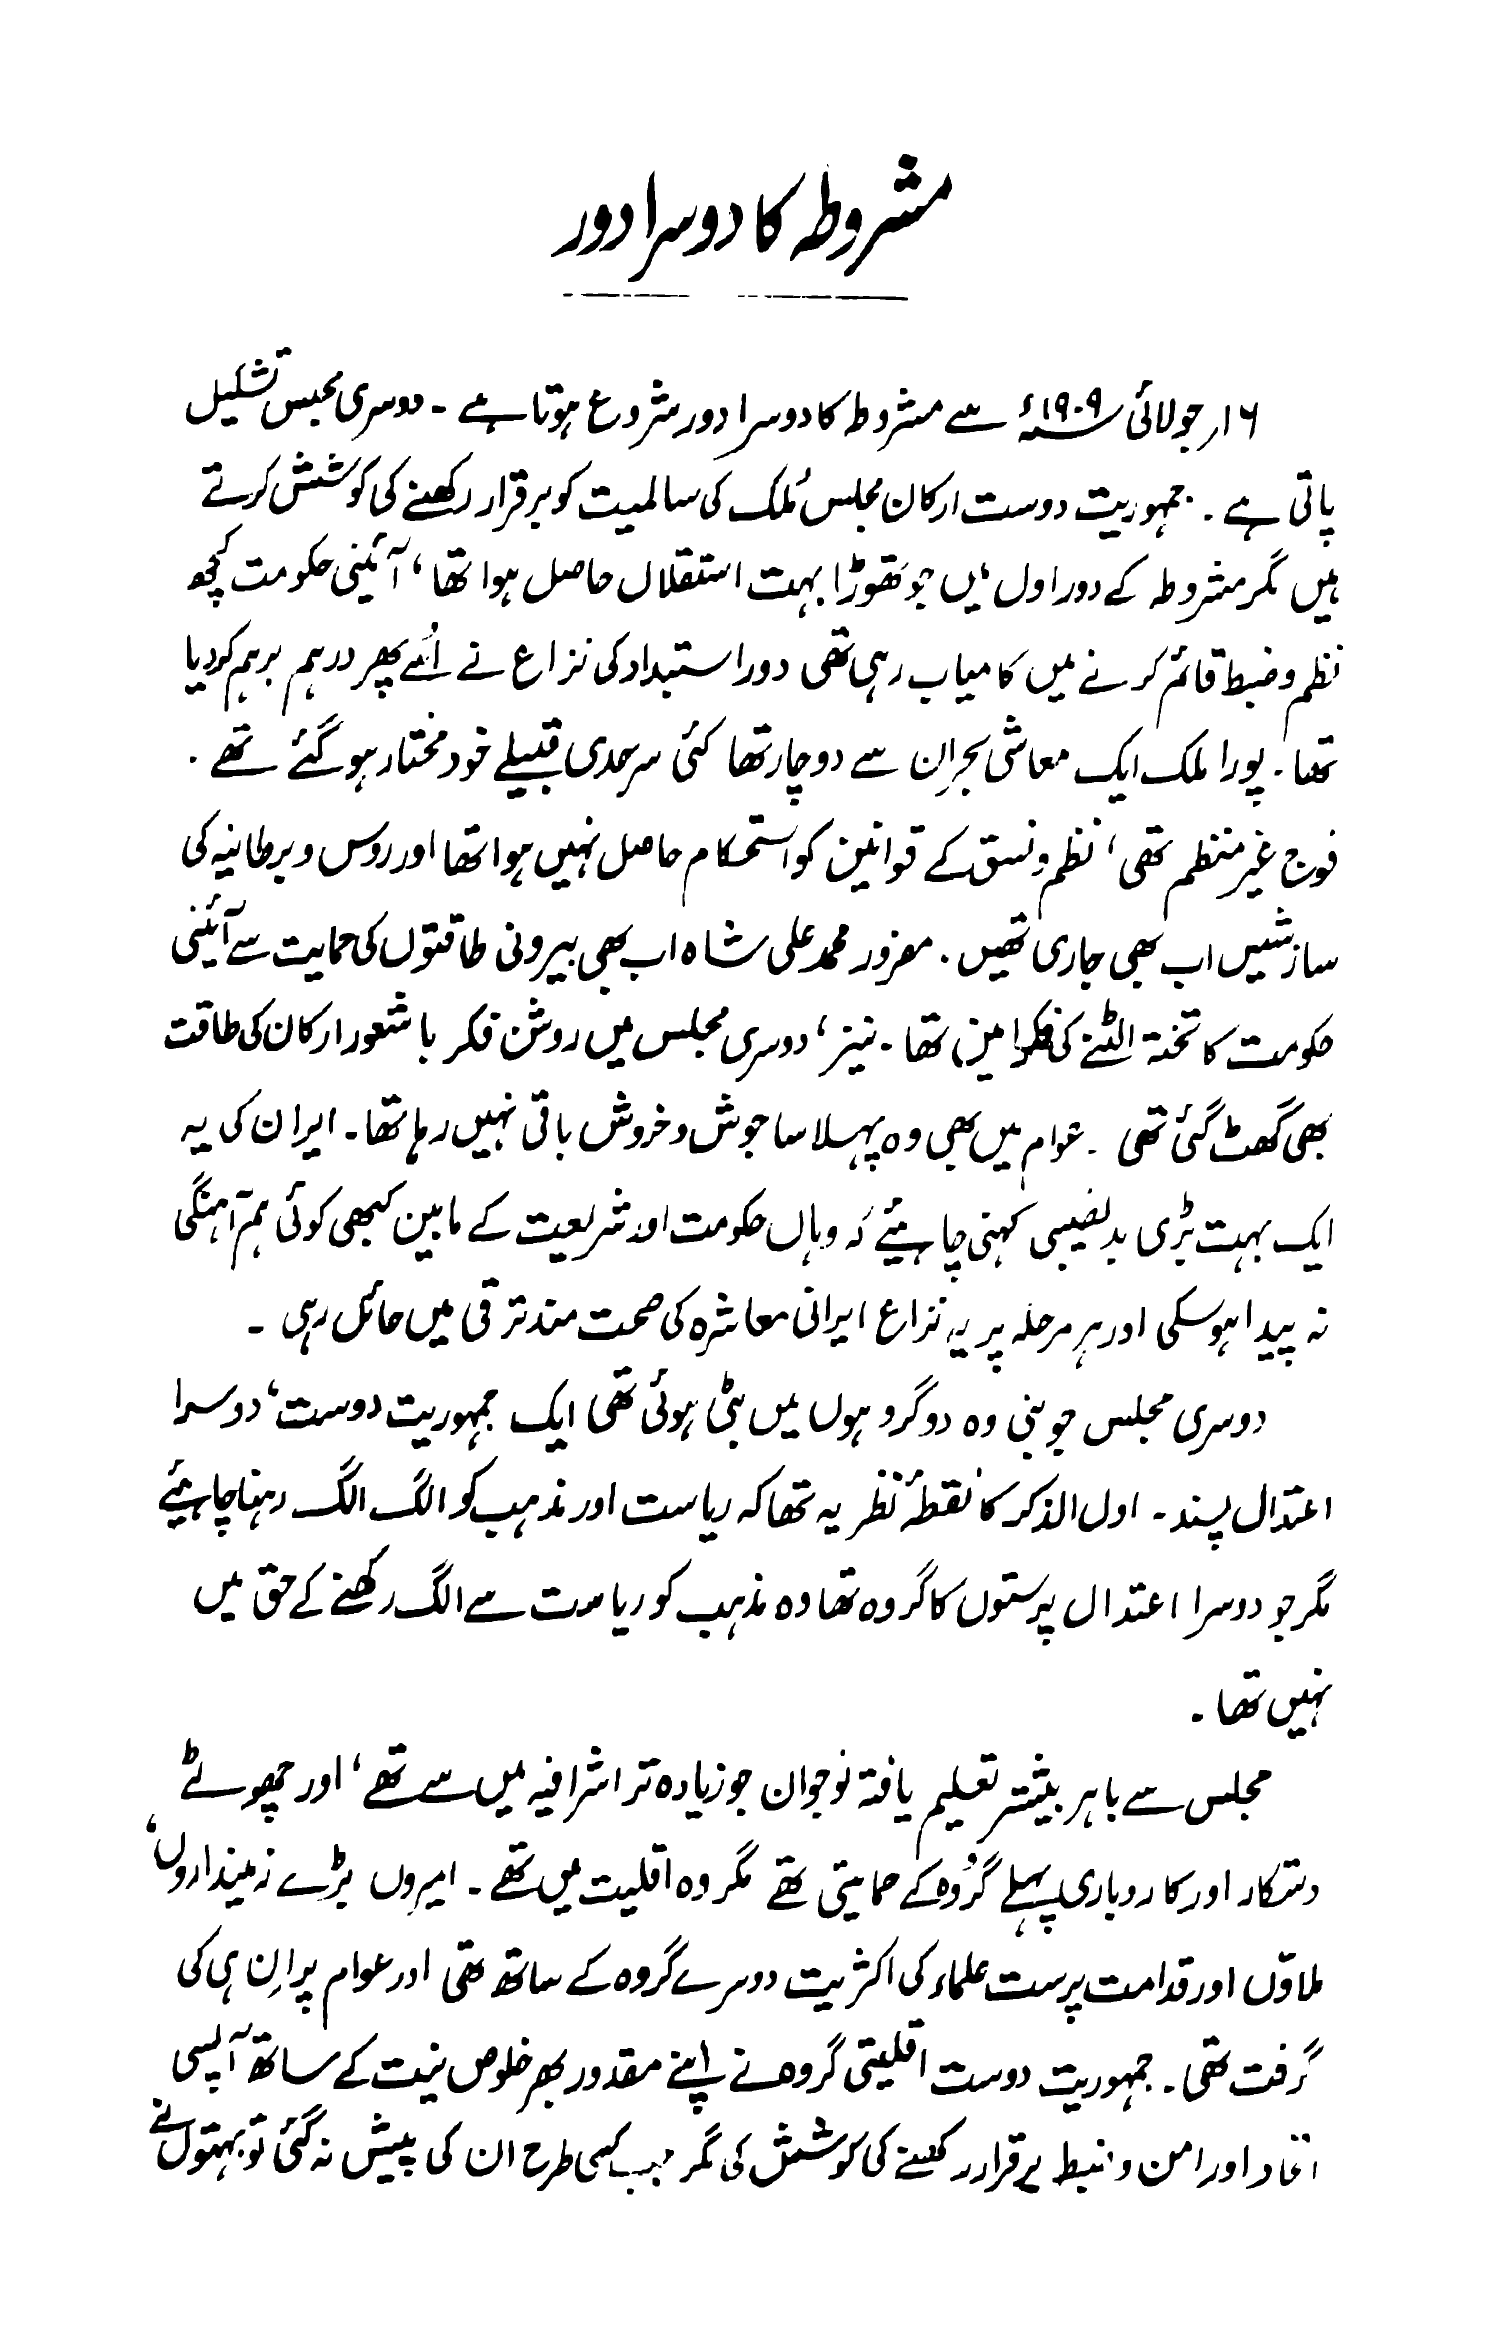 مشروطہ کا دوسرا دور
۱۶ر جولائی ۱۹۰۹ء سے مشروطہ کا دوسرا دور شروع ہوتا ہے ۔ دوسری مجلس تشکیل
پاتی ہے ۔ جمہوریت دوست ارکان مجلس مُلک کی سالمیت کو برقرار رکھنے کی کوشش کرتے
ہیں مگر مشروطہ کے دور اول میں جو تھوڑا بہت استقلال حاصل ہوا تھا، آئینی حکومت کچھ
نظم و ضبط قائم کرنے میں کامیاب رہی تھی دور استبداد کی نزاع نے اُسے پھر درہم برہم کردیا
تھا۔ پورا ملک ایک معاشی بحران سے دوچار تھا کئی سرحدی قبیلے خود مختار ہوگئے تھے ۔
فوج غیر منتظم تھی، نظم و نسق کے قوانین کو استحکام حاصل نہیں ہوا تھا اور روس و برطانیہ کی
سازشیں اب بھی جاری تھیں ۔ مفرور محمد علی شاہ اب بھی بیرونی طاقتوں کی حمایت سے آئینی
حکومت کا تختہ الٹنے کی فکر میں تھا ۔ نیز، دوسری مجلس میں روشن فکر با شعور ارکان کی طاقت
بھی گھٹ گئی تھی ۔ عوام میں بھی وہ پہلا سا جوش و خروش باقی نہیں رہا تھا۔ ایران کی یہ
ایک بہت بڑی بدنصیبی کہنی چاہیئے کہ وہاں حکومت اور شریعت کے مابین کبھی کوئی ہم آہنگی
نہ پیدا ہوسکی اور ہر مرحلہ پر یہ نزاع ایرانی معاشرہ کی صحت مند ترقی میں حائل رہی ۔
دوسری مجلس جو بنی وہ دو گروہوں میں بٹی ہوئی تھی ایک جمہوریت دوست، دوسرا
اعتدال پسند ۔ اول الذکر کا نقطۂ نظر یہ تھا کہ ریاست اور مذہب کو الگ الگ رہنا چاہیئے
مگر جو دوسرا اعتدال پرستوں کا گروہ تھا وہ مذہب کو ریاست سے الگ رکھنے کے حق میں
نہیں تھا ۔
مجلس سے باہر بیشتر تعلیم یافتہ نوجوان جو زیادہ تر اشرافیہ میں سے تھے، اور چھوٹے
دستکار اور کاروباری پہلے گرُوہ کے حمایتی تھے مگر وہ اقلیت میں تھے ۔ امیروں بڑے زمینداروں،
ملاؤں اور قدامت پرست علماء کی اکثریت دوسرے گروہ کے ساتھ تھی اور عوام پر اِن ہی کی
گرفت تھی ۔ جمہوریت دوست اقلیتی گروہ نے اپنے مقدور بھر خلوص نیت کے ساتھ آپسی
اتحاد اور امن و ضبط برقرار رکھنے کی کوشش کی مگر جب کسی طرح ان کی پیش نہ گئی تو بہتوں نے